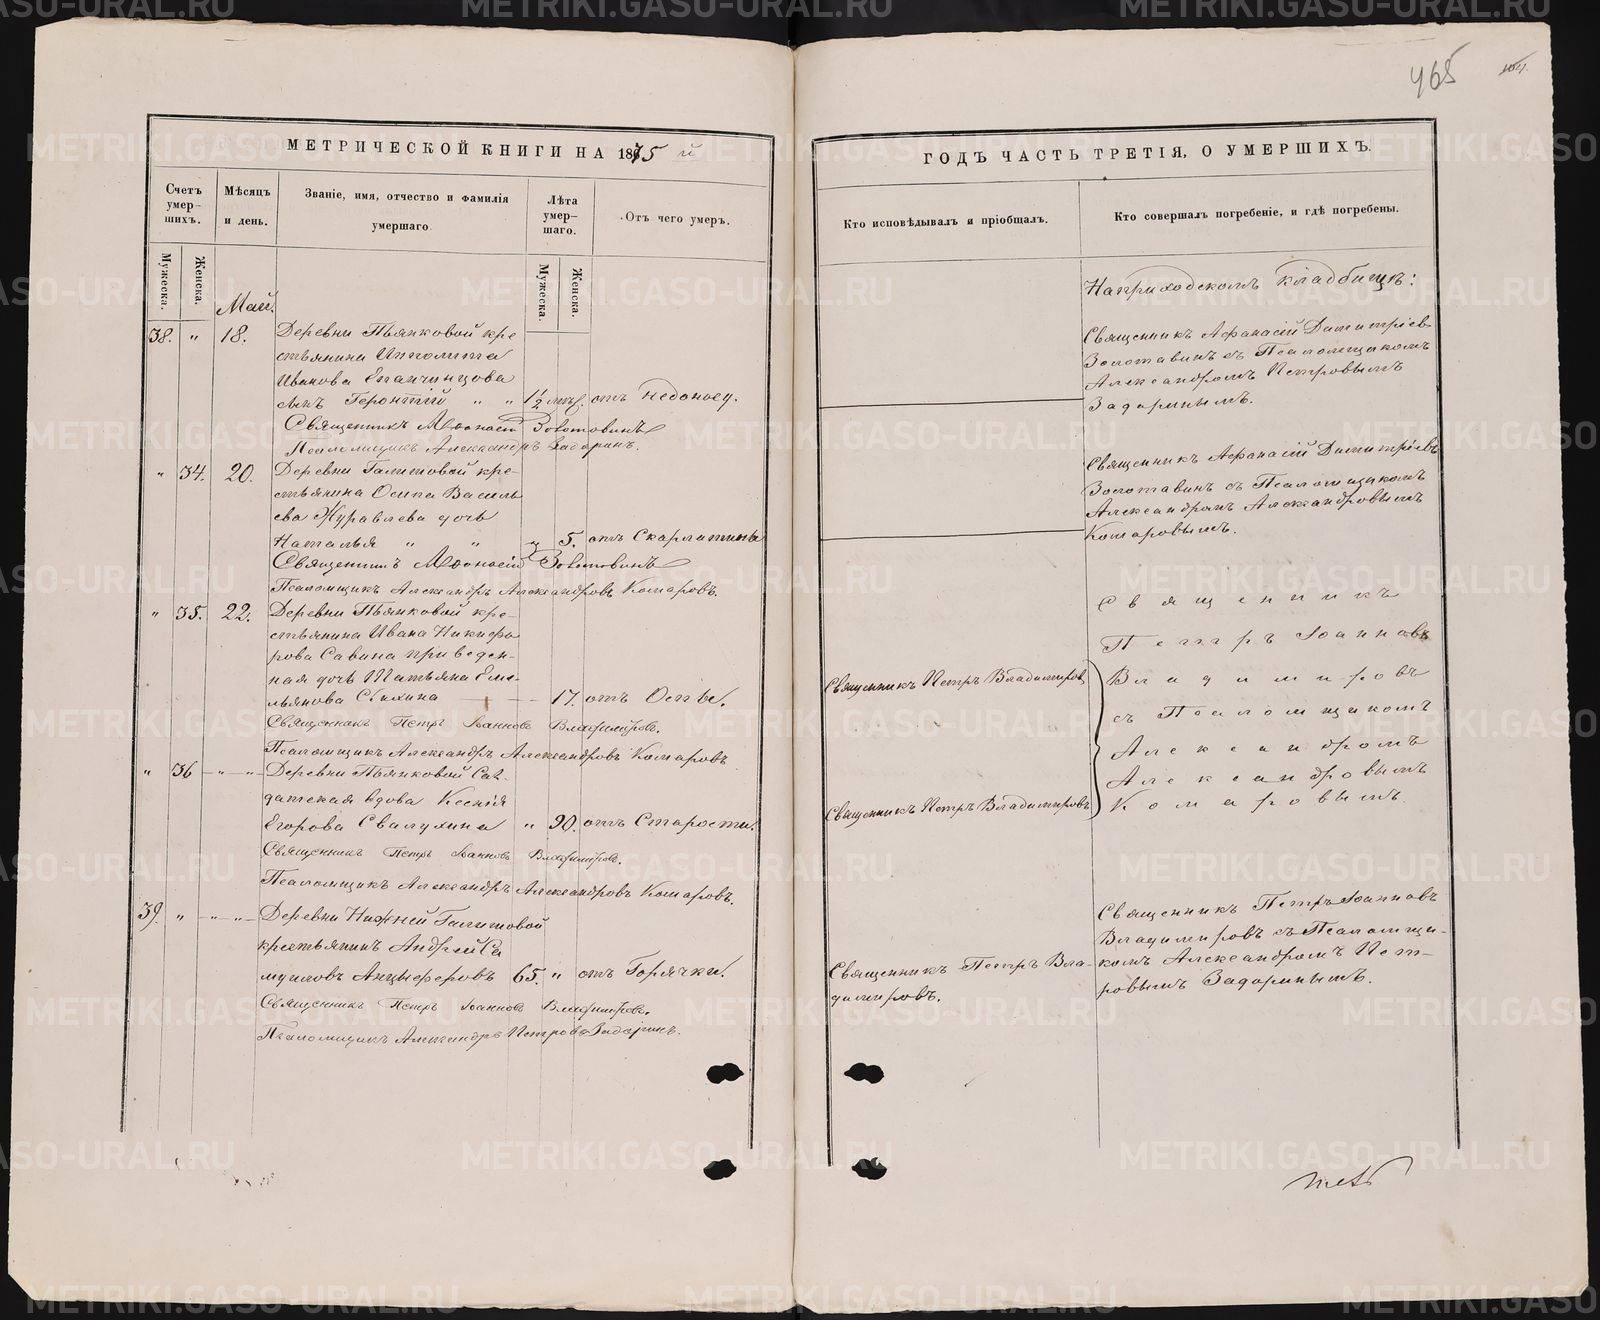 465
МЕТРИЧЕСКОЙ КНИГИ НА 1875 й
ГОДЪ ЧАСТЬ ТРЕТІЯ, О УМЕРШИХЪ.
Счетъ умер-шихъ.
Мужеска.
Женска.
Мѣсяцъ и день.
Званіе, имя, отчество и фамилія умершаго.
Лѣта умер-шаго.
Мужеска.
Женска.
Отъ чего умеръ.
Кто исповѣдывалъ и пріобщалъ.
Кто совершалъ погребеніе, и гдѣ погребены.
Май.
На приходскомъ кладбищѣ:
38. " 18. Деревни Пьянковой кре
стьянина Ипполита
Иванова Епанчинцова
сынъ Геронтій " " 1½ мѣс. отъ Недоносу.
Священникъ Афанасій Золотавинъ
Псаломщикъ Александръ Задоринъ.
Священникъ Афанасій Димитріевъ
Золотавинъ съ Псаломщикомъ
Александромъ Петровымъ
Задоринымъ.
" 34. 20. Деревни Галишовой кре-
стьянина Осипа Василь
ева Журавлева дочь
Наталья " " " 5. отъ Скарлатины
Священникъ Афанасій Золотавинъ
Псаломщикъ Александръ Александровъ Комаровъ.
Священникъ Афанасій Димитріевъ
Золотавинъ съ Псаломщикомъ
Александромъ Александровымъ
Комаровымъ.
" 35. 22. Деревни Пьянковой кре-
стьянина Ивана Никифо
рова Савина приведен-
ная дочь Татьяна Еме-
льянова 17. отъ Оспы.
Священникъ Петръ Іоанновъ Владиміровъ.
Псаломщикъ Александръ Александровъ Комаровъ
Священникъ Петръ Владиміровъ
Священникъ
Петръ Іоанновъ
Владиміровъ
съ Псаломщикомъ
Александромъ
Александровымъ
Комаровымъ.
" 36 — " — " — Деревни Пьянковой Сол-
датская вдова Ксенія
Егорова Свалухина " 90. отъ Старости.
Священникъ Петръ Іоанновъ Владиміровъ.
Псаломщикъ Александръ Александровъ Комаровъ.
Священникъ Петръ Владиміровъ
39. " — " — " — Деревни Нижней Галишовой
крестьянинъ Андрей Са
муиловъ Анцыферовъ 65. " отъ Горячки.
Священникъ Петръ Іоанновъ Владиміровъ.
Псаломщикъ Александръ Петровъ Задоринъ.
Священникъ Петръ Вла-
диміровъ.
Священникъ Петръ Іоанновъ
Владиміровъ съ Псаломщи-
комъ Александромъ Пет-
ровымъ Задоринымъ.